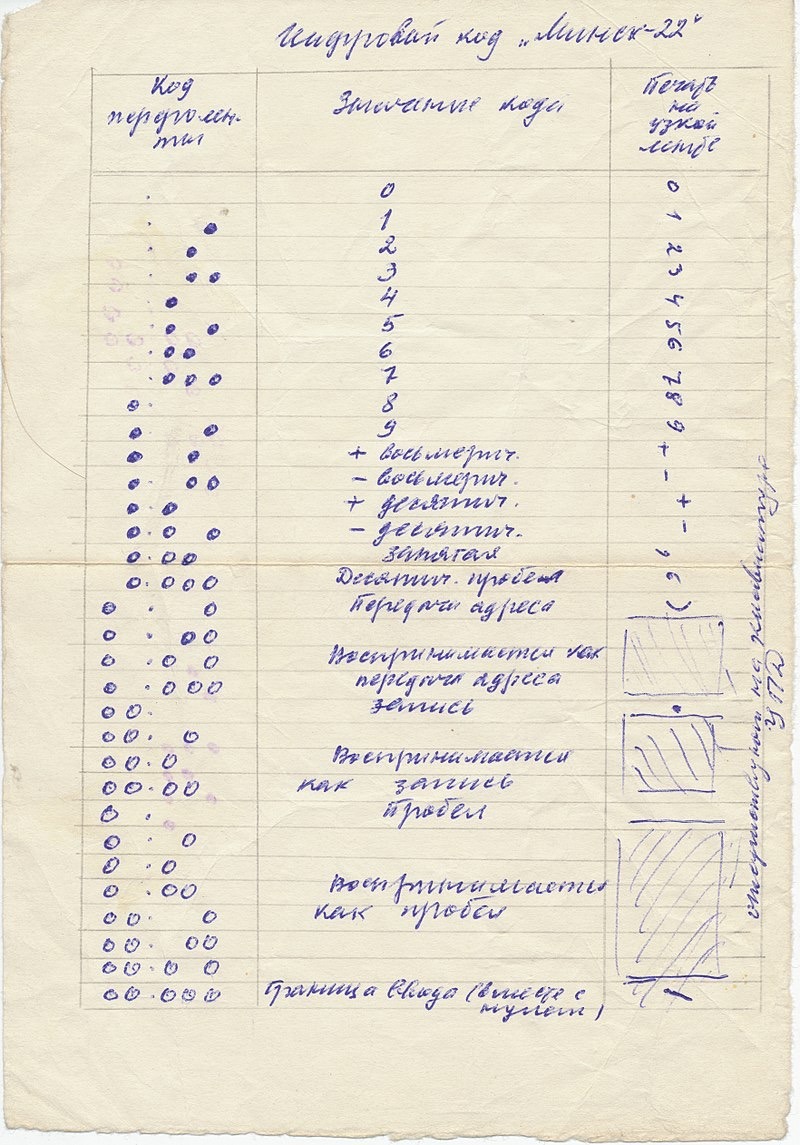 Цифровой код „Минск-22"
Код перфолен-ты Значение кода Печать на узкой ленте
0 0
1 1
2 2
3 3
4 4
5 5
6 6
7 7
8 8
9 9
+ восьмерич. +
- восьмерич. -
+ десятич. +
- десятич. -
запятая
Десятич. пробел
Передача адреса
Воспринимается как
передача адреса
запись
Воспринимается
как запись
Пробел
Воспринимается
как пробел
Граница ввода (вместе с
нулем)
отсутствуют на клавиатуре
УПД